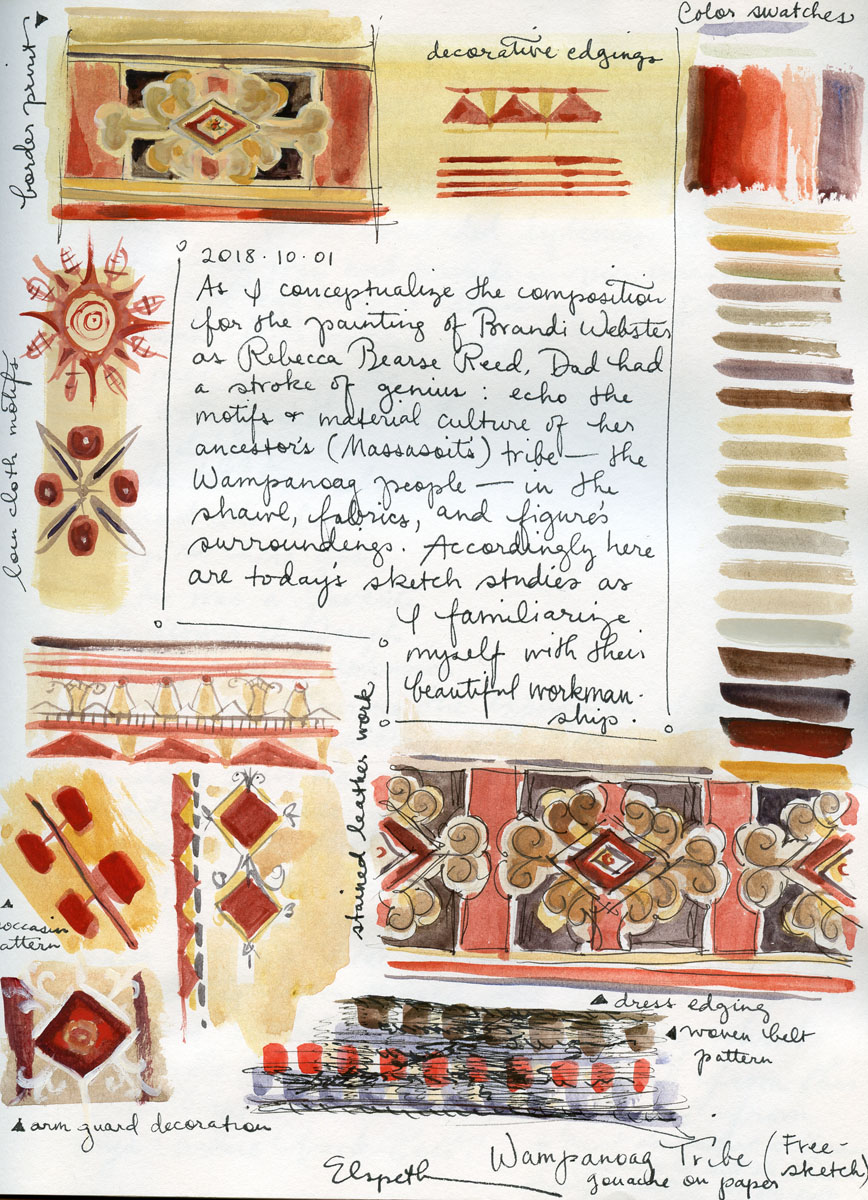 Color swatches
border print
decorative edgings
2018.10.01
As I conceptualize the composition
for the painting of Brandi Webster
as Rebecca Bearse Reed, Dad had
a stroke of genius: echo the
motifs & material culture of her
ancestor's (Massasoit's) tribe — the
Wampanoag people — in the
shawl, fabrics, and figure's
surroundings. Accordingly here
are today's sketch studies as
I familiarize
myself with their
beautiful workman-
ship.
loin cloth motifs
stained leather work
moccasin
pattern
dress edging
woven belt
pattern
arm guard decoration
Wampanoag Tribe (Free-
sketch)
gouache on paper
Elspeth